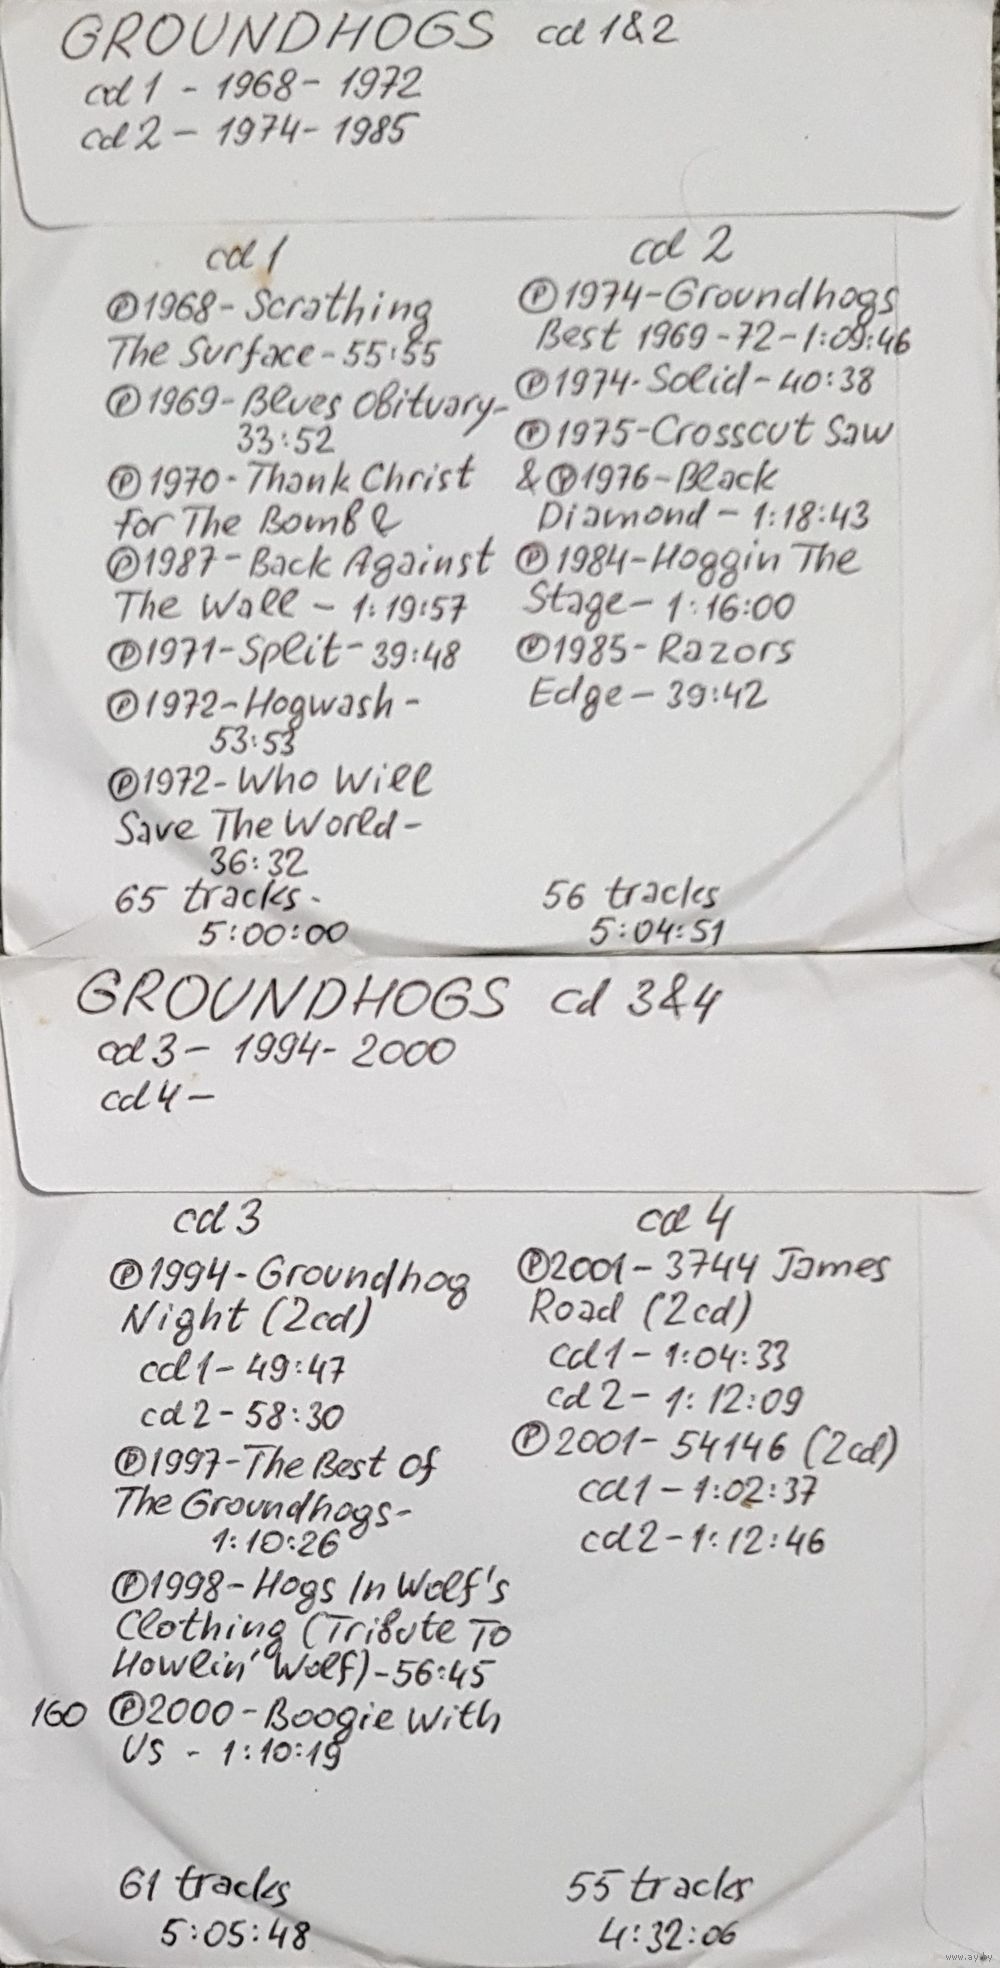 GROUNDHOGS cd 1&2
cd 1 - 1968- 1972
cd 2 - 1974- 1985
cd 1
Ⓟ1968- Scrathing
The Surface - 55:55
Ⓟ1969- Blues Obituary-
33:52
Ⓟ1970- Thank Christ
for The Bomb &
Ⓟ1987- Back Against
The Wall - 1:19:57
Ⓟ1971- Split - 39:48
Ⓟ1972- Hogwash -
53:53
Ⓟ1972- Who Will
Save The World -
36:32
65 tracks -
5:00:00
cd 2
Ⓟ1974-Groundhogs
Best 1969-72-1:09:46
Ⓟ1974- Solid - 40:38
Ⓟ1975-Crosscut Saw
& Ⓟ1976-Black
Diamond - 1:18:43
Ⓟ1984-Hoggin The
Stage - 1:16:00
Ⓟ1985- Razors
Edge - 39:42
56 tracks
5:04:51
GROUNDHOGS cd 3&4
cd 3 - 1994- 2000
cd 4 -
cd 3
Ⓟ1994- Groundhog
Night (2cd)
cd 1 - 49:47
cd 2 - 58:30
Ⓟ1997-The Best Of
The Groundhogs-
1:10:26
Ⓟ1998- Hogs In Wolf's
Clothing (Tribute To
Howlin' Wolf) - 56:45
160 Ⓟ2000- Boogie With
US - 1:10:19
61 tracks
5:05:48
cd 4
Ⓟ2001- 3744 James
Road (2cd)
cd 1 - 1:04:33
cd 2 - 1:12:09
Ⓟ2001- 54146 (2cd)
cd 1 - 1:02:37
cd 2 - 1:12:46
55 tracks
4:32:06
www.ay.by